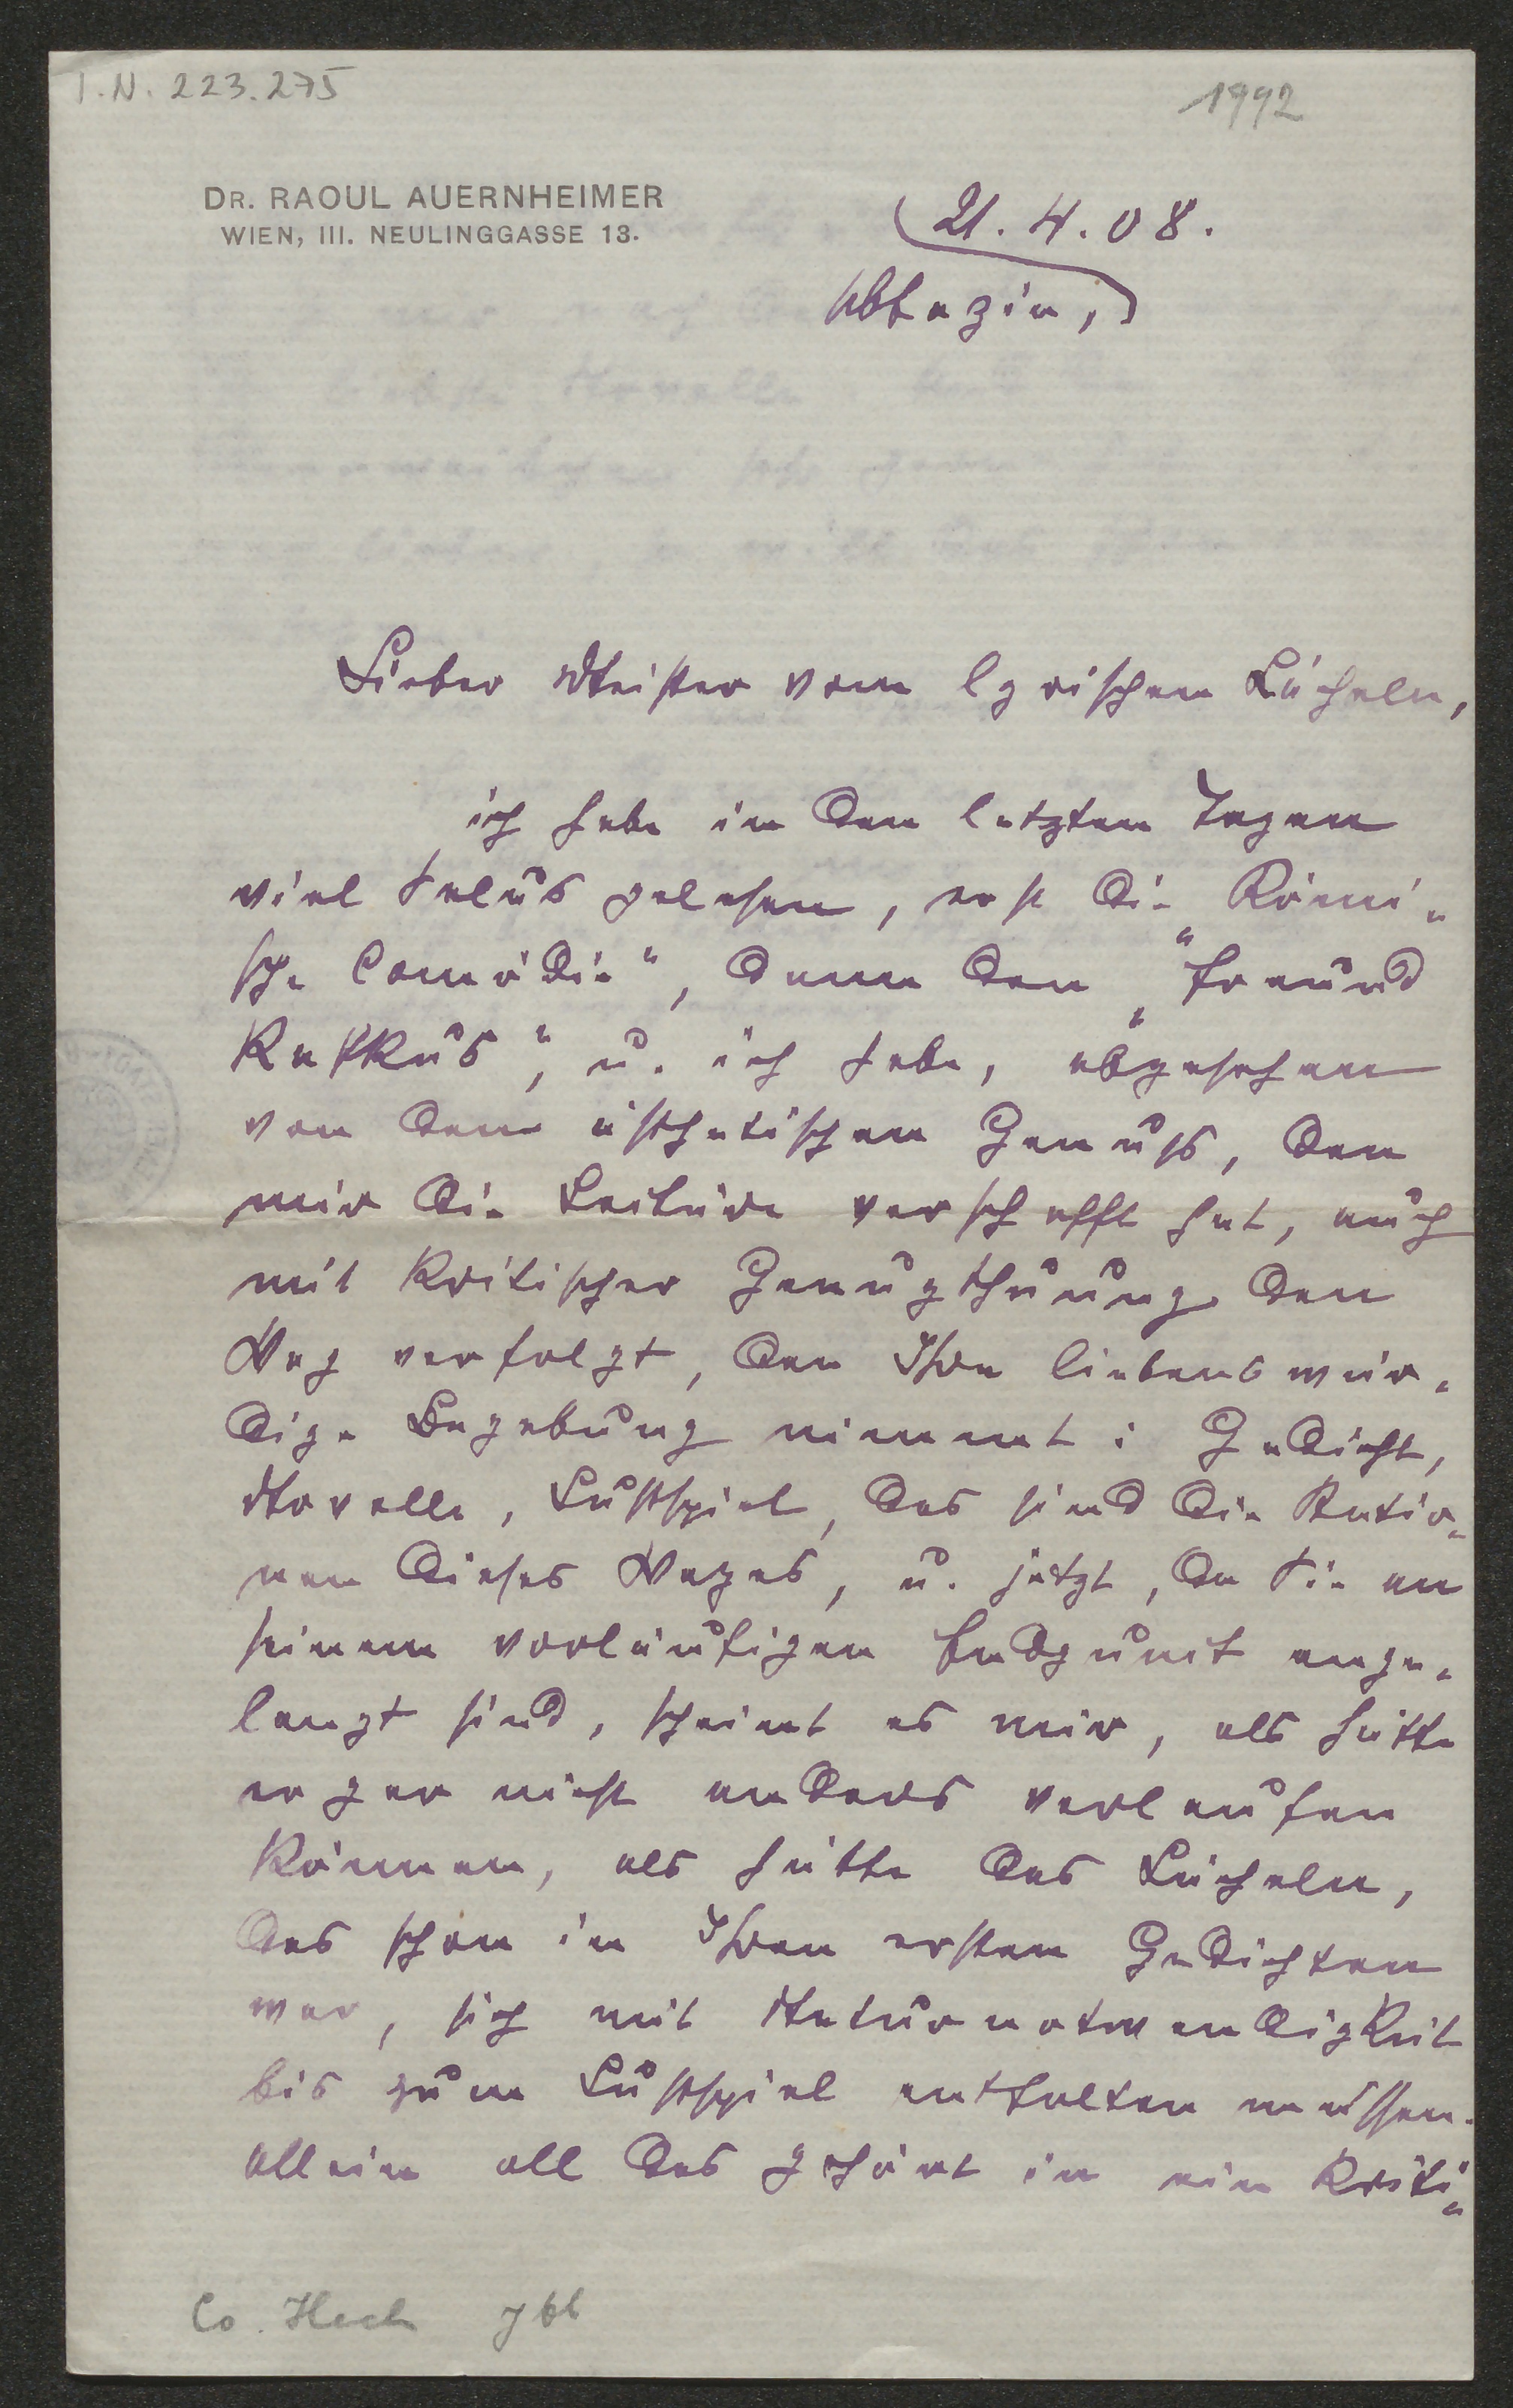 I.N. 223.275
1992
DR. RAOUL AUERNHEIMER
WIEN, III. NEULINGGASSE 13.
21.4.08.
Abbazia,
Lieber Meister vom lyrischen Lächeln,
ich habe in den letzten Tagen
viel Salus gelesen, erst die Römi-
sche Comödie“, dann den „Freund
Kafkus“, u. ich habe, abgesehen
von dem ästhetischen Genuss, den
mir die Lectüre verschafft hat, auch
mit kritischer Genugthuung den
Weg verfolgt, den Ihre liebenswür-
dige Begabung nimmt: Gedicht,
Novelle, Lustspiel, das sind die Statio-
nen dieses Weges, u. jetzt, da Sie an
seinem vorläufigen Endpunct ange-
langt sind, scheint es mir, als hätte
er gar nicht anders verlaufen
können, als hätte das Lächeln,
das schon in Ihren ersten Gedichten
war, sich mit Naturnotwendigkeit
bis zum Lustspiel entfalten müssen.
Allein all das gehört in eine Kriti-